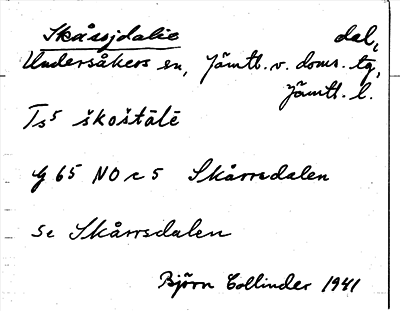 Skårsjdalie dal,
Undersåkers sn, Jämtl. v. doms. tg,
Jämtl. l.
Ts5 škoštālē
G 65 NO c 5 Skårrsdalen
Se Skårrsdalen
Björn Collinder 1941